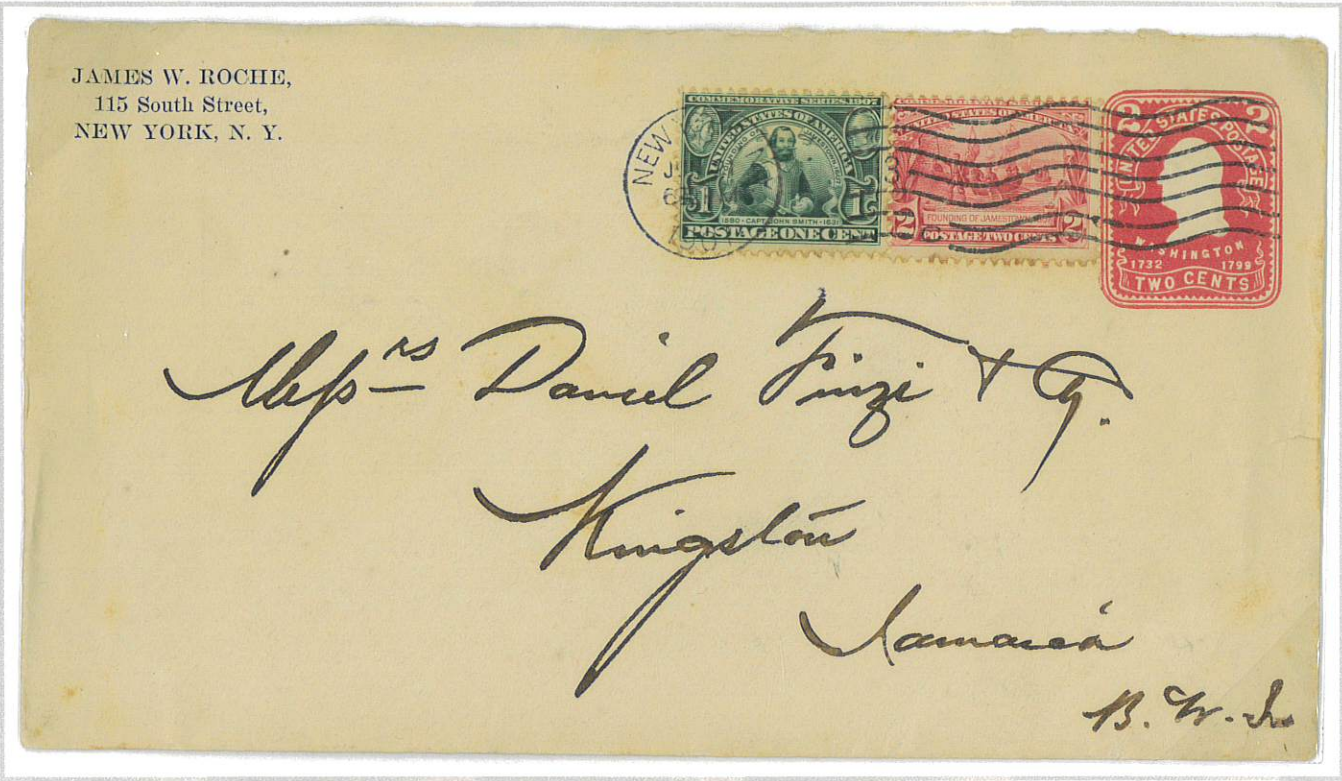 JAMES W. ROCHE,
115 South Street,
NEW YORK, N. Y.
NEW
1907
COMMEMORATIVE SERIES 1907
UNITED STATES OF AMERICA
FOUNDING OF JAMESTOWN 1607
1 1
1580 · CAPT. JOHN SMITH · 1631
POSTAGE ONE CENT
UNITED STATES OF AMERICA
FOUNDING OF JAMESTOWN
2 2
POSTAGE TWO CENTS
2 2
UNITED STATES POSTAGE
WASHINGTON
1732 1799
TWO CENTS
Messrs Daniel Finzi & Cy.
Kingston
Jamaica
B. W. I.